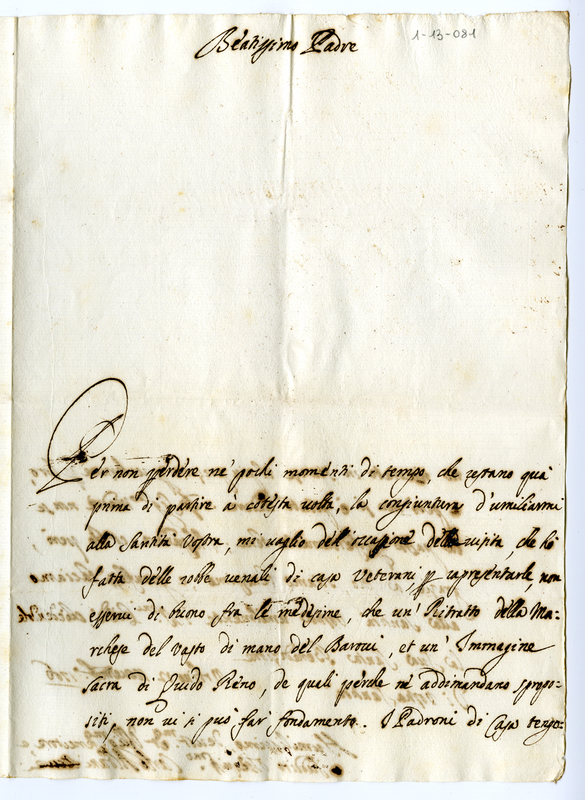 Beatissimo Padre
1-13-081
Per non perdere ne' pochi momenti di tempo, che restano quà
prima di partire à cotesta volta, la congiuntura d'umiliarmi
alla Santità Vostra, mi vaglio dell'occasione della visita, che hò
fatta delle robbe venali di casa Veterani, p rapresentarle, non
esservi di buono frà le medesime, che un' Ritratto della Ma-
rchese del Vasto di mano del Barocci, et un' Immagine
sacra di Guido Reno, de quali perche ne addimandano spropo-
siti, non vi si può far' fondamento. I Padroni di Casa tengo-